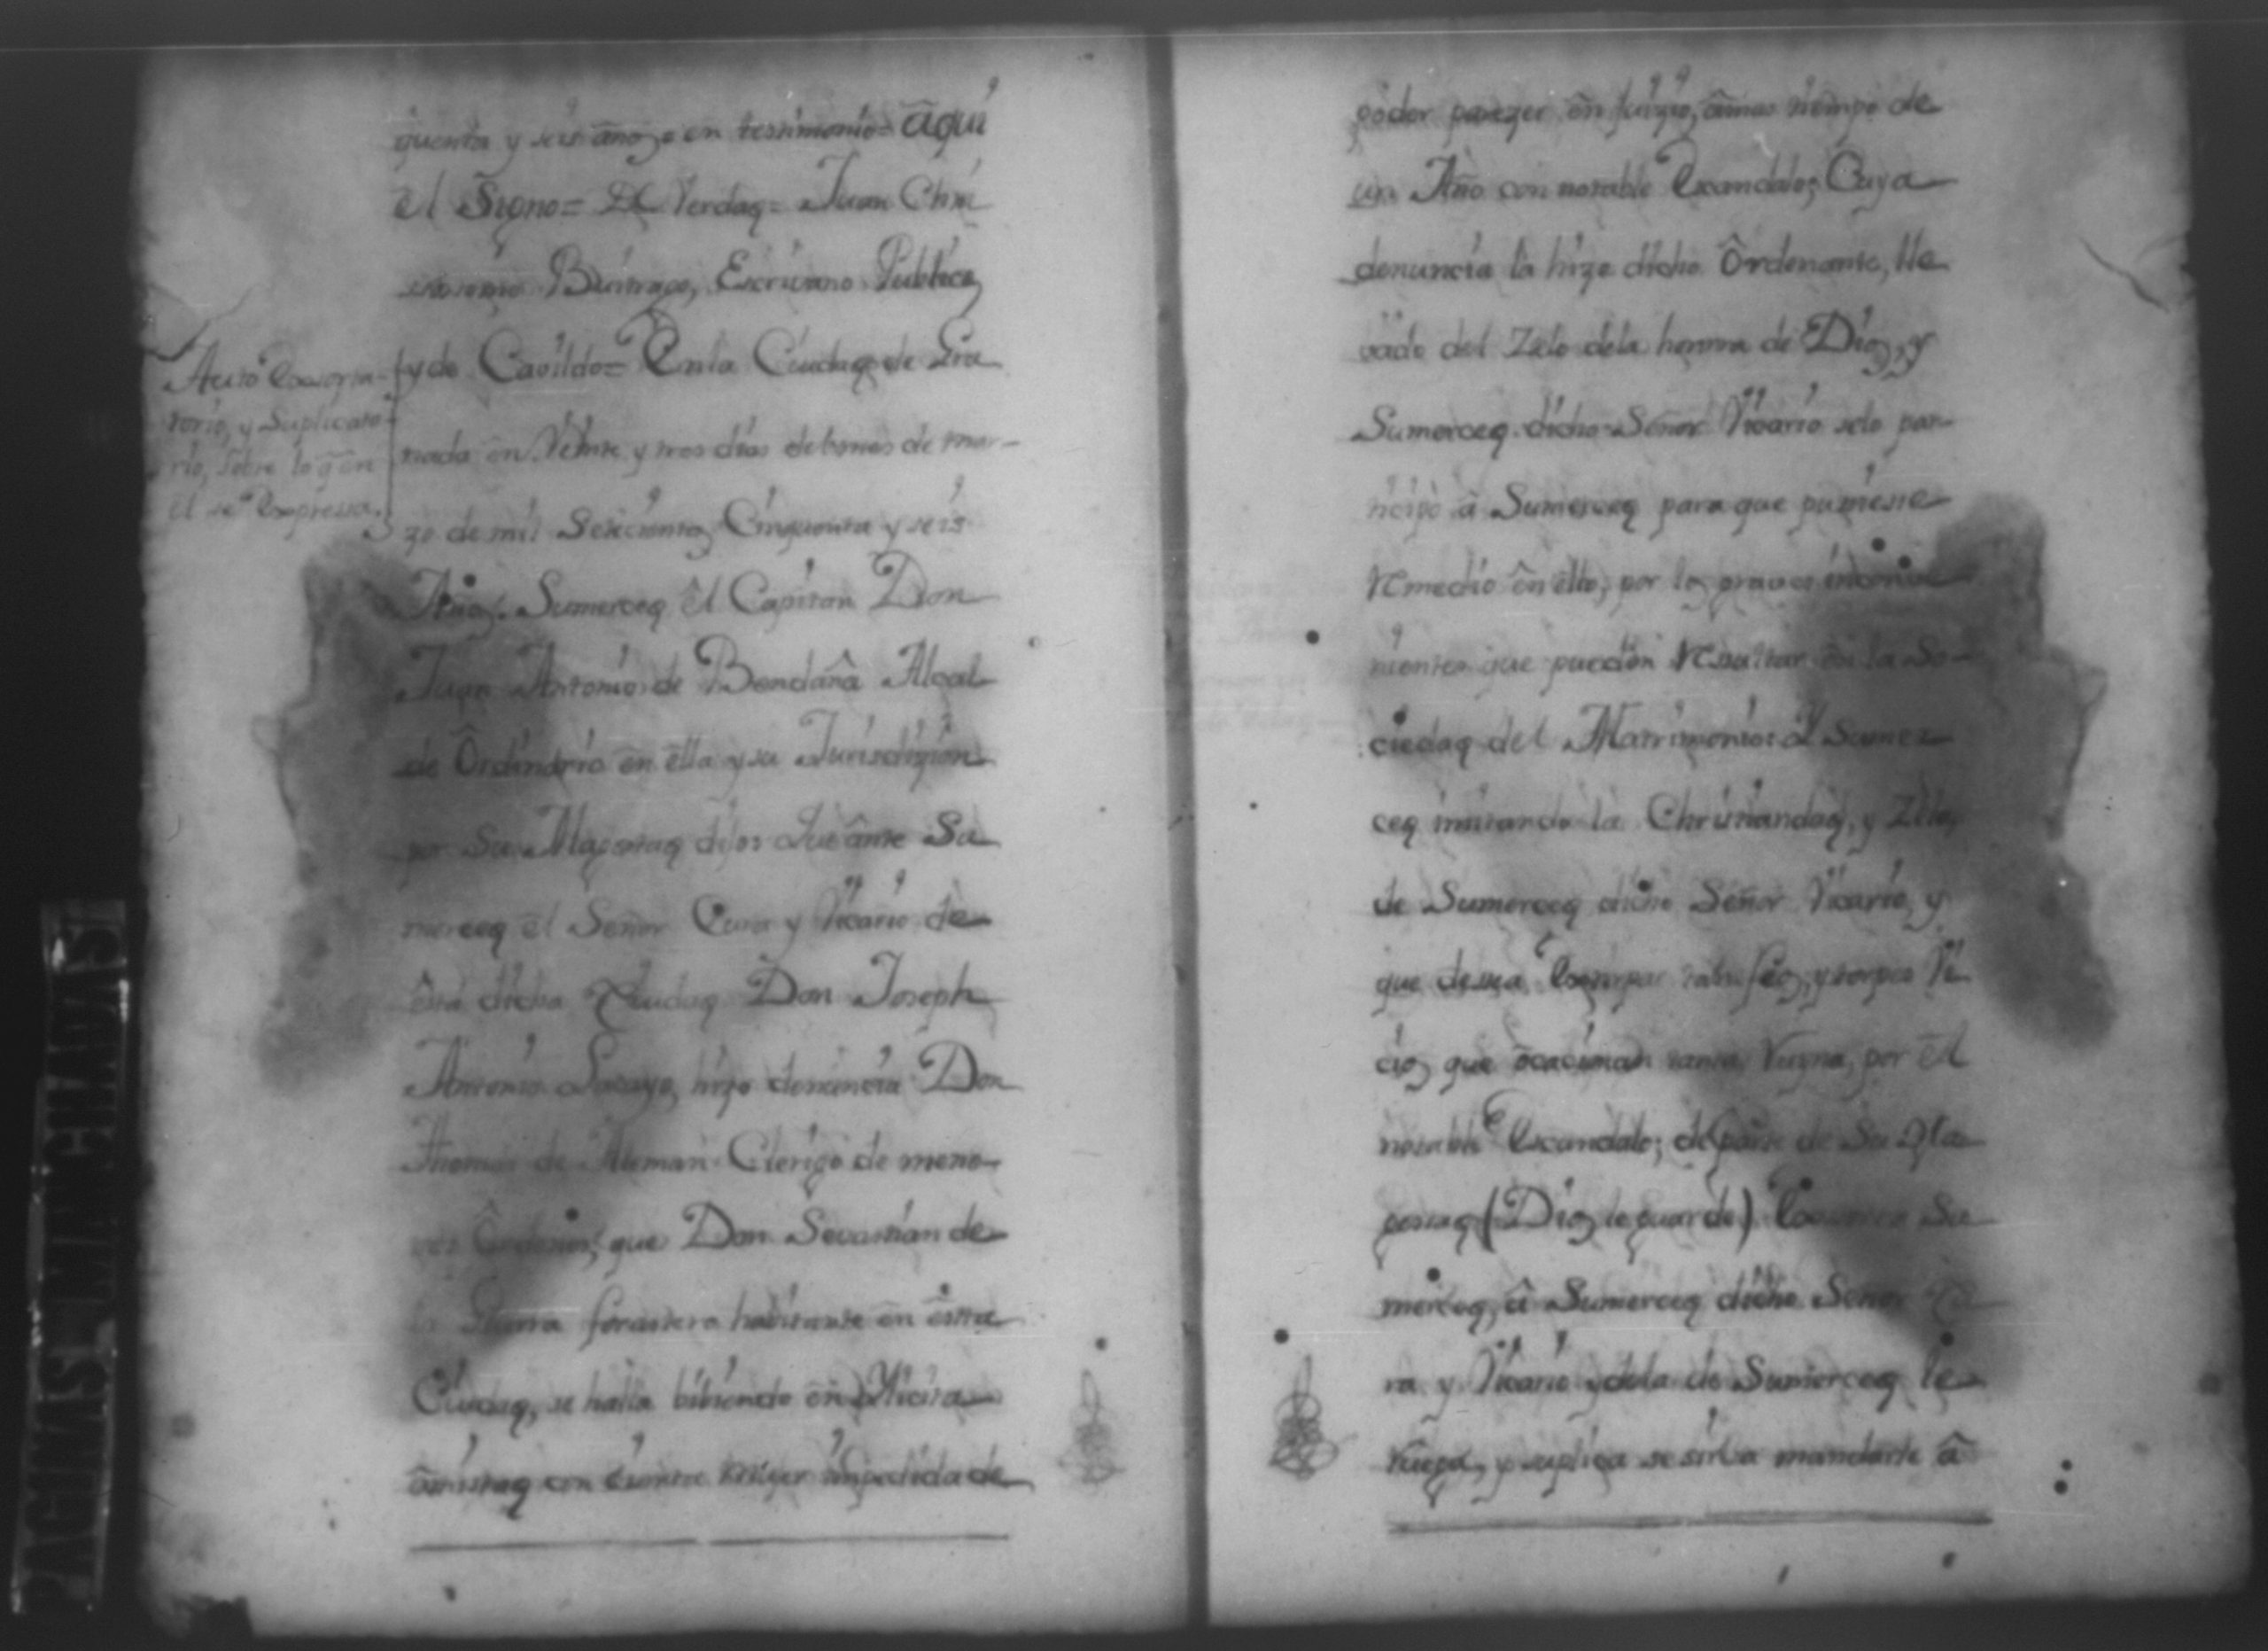 quenta y seis años en testimonio= âqui
êl Signo= De Verdaq= Juan Chri
Buitrago, Escrivano Publico,
y de Cavildo= En la Ciudaq de Gra
nada ên Veinte y tres dias del mes de mar-
zo de mil Setecientos Cinquenta y seis
Años. Sumerceq êl Capitan Don
Juan Antonio de Bendaña Alcal
de Ôrdinario ên êlla y su Jurisdizion
por Su Magestaq dijo: Que ânte Su
merceq êl Señor Cura y Vicario de
êsta dicha Ciudaq Don Joseph
Antonio Lacayo, hizo denuncia Don
Thomas de Aleman Clerigo de meno-
res Ôrdenes, que Don Sevastian de
la forastero habitante ên êsta
Ciudaq, se halla bibiendo ên Ylicita
âmistaq con cierta muger impedida de
Auto Exorta-
torio, y Suplicato-
rio, sobre lo q̃ ên
êl se Expressa.
poder parezer ên juizio, â mas tiempo de
un Año con notable Escandalo; Cuya
denuncia la hizo dicho Ôrdenante, lle
vado del Zelo de la honrra de Dios, y
Sumerceq dicho Señor Vicario selo par-
ticipò â Sumerceq para que pusiesse
Remedio ên êllo, por los graves inconve
nientes que pueden Resultar ên la So-
ciedaq del Matrimonio: Y Sumer
ceq imitando la Christiandaq, y Zelo,
de Sumerceq dicho Señor Vicario, y
que desea Extirpar tales feos, y torpes Vi
cios que ôcacionan tanta Ruyna, por êl
notable Escandalo; de parte de Su Ma
gestaq (Dios le guarde) Su
merceq, â Sumerceq dicho Señor Cu
ra y Vicario y de la de Sumerceq le
ruega, y suplica se sirba mandarle â
PAGINAS MANCHADAS